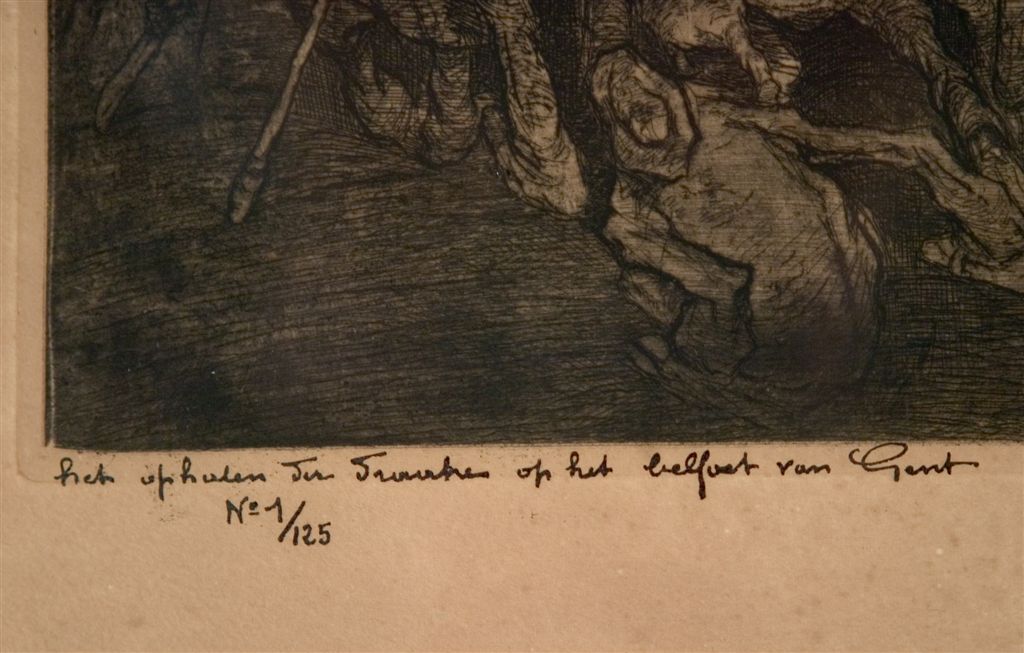 het ophalen der Draake op het belfort van Gent
Nº 1/125